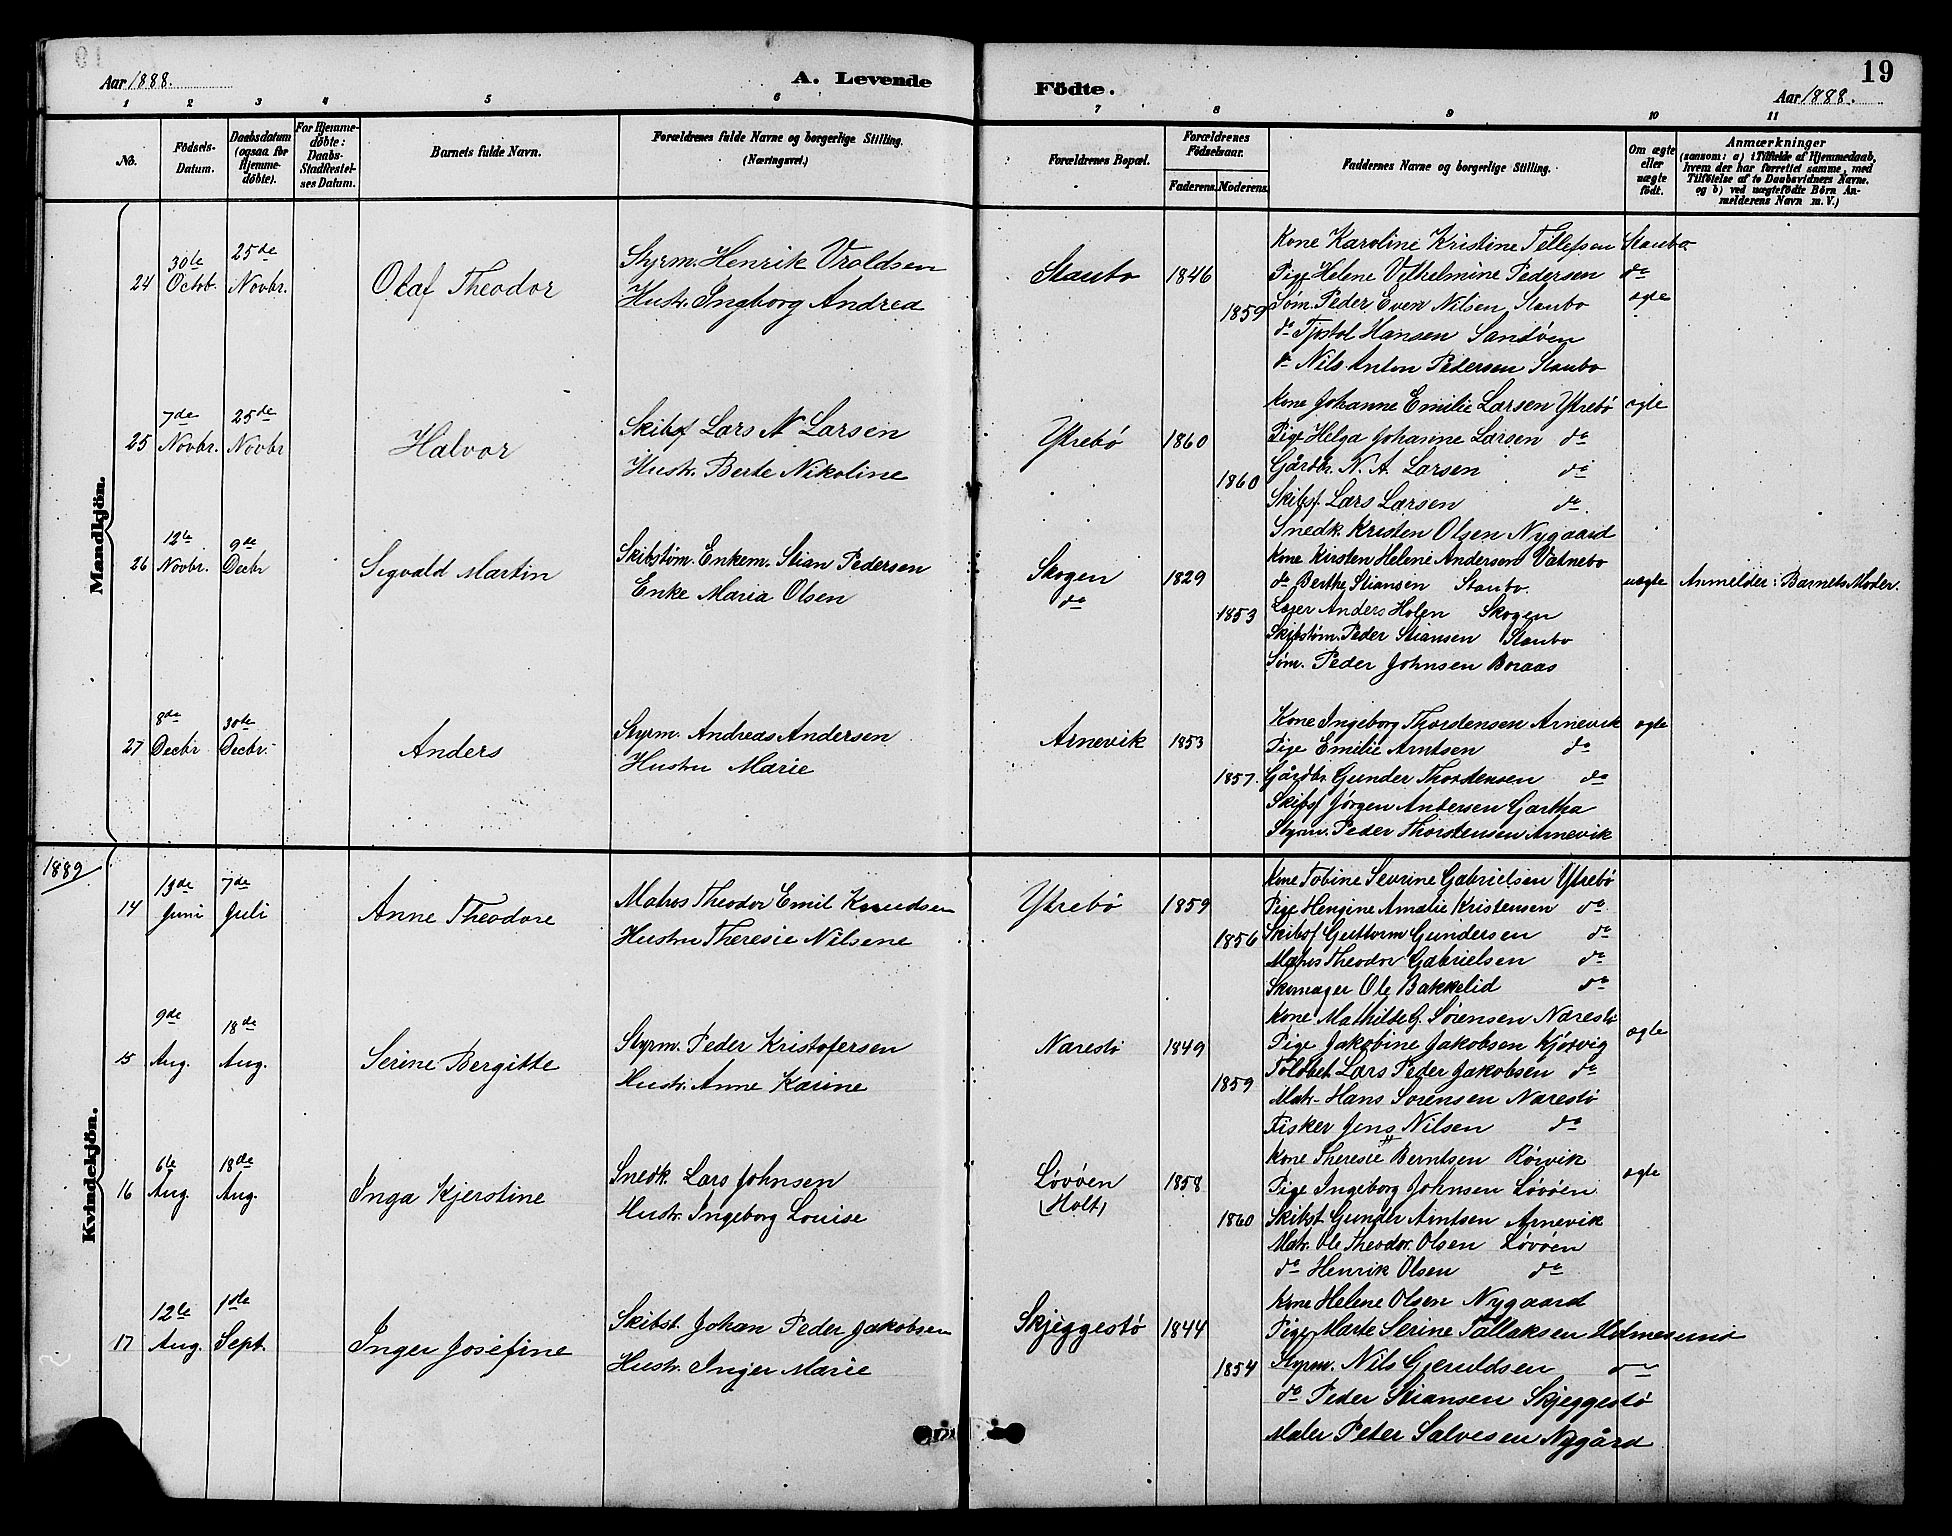 Aar 1888.
A. Levende Födte.
19
Aar 1888.
1 2 3 4 5 6 7 8 9 10 11
No.
Födsels-Datum.
Daabsdatum (ogsaa for Hjemme-döbte).
For Hjemme-döbte: Daabs-Stadfæstel-ses Datum.
Barnets fulde Navn.
Forældrenes fulde Navne og borgerlige Stilling. (Næringsvei.)
Forældrenes Bopæl.
Forældrenes Födselsaar.
Faderens. Moderens.
Faddernes Navne og borgerlige Stilling.
Om ægte eller uægte födt.
Anmærkninger
(saasom: a) i Tilfælde af Hjemmedaab, hvem der har forrettet samme, med Tilföielse af to Daabsvidners Navne, og b) ved uægtefödte Börn An-melderens Navn m. V.)
Mandkjön.
24
30te Octob.
25de Novbr.
Olaf Theodor
Styrm. Henrik Vroldsen
Hustr. Ingborg Andrea
Staubo
1846
1859
Kone Karoline Kristine Tellefsen Staubo
Pige Helene Vilhelmine Pedersen do
Søm. Peder Even Nilsen Staubo
do Tjøstol Hansen Sandöen
do Nils Anton Pedersen Staubo
ægte
25
7de Novbr.
25de Novbr
Halvor
Skibsf Lars N Larsen
Hustr. Berte Nikoline
Ytrebö
1860
1860
Kone Johanne Emilie Larsen Ytrebö
Pige Helga Johanne Larsen do
Gårdbr. N. A. Larsen do
Skibsf. Lars Larsen do
Snedk. Kristen Olsen Nygaard
ægte
26
12te Novbr.
9de Decbr
Sigvald Martin
Skibstøm. Enkem. Stian Pedersen
Enke Maria Olsen
Skogen
do
1829
1853
Kone Kirsten Helene Andersen Vatnebo
do Berthe Stiansen Staubo.
Anders Holen Skogen
Skibstøm. Peder Stiansen Staubo
Søm. Peder Johnsen Boraas
uægte
Anmelder: Barnets Moder.
27
8de Decbr
30te Decbr.
Anders
Styrm. Andreas Andersen
Hustru Marie
Arnevik
1853
1857.
Kone Ingeborg Thorstensen Arnevik
Pige Emilie Arntsen do
Gårdbr. Gunder Thorstensen do
Skibsf Jörgen Andersen Gartha
Styrm. Peder Thorstensen Arnevik
ægte
1889
Kvindekjön.
14
13de Juni
7de Juli
Anne Theodore
Matros Theodor Emil Knudsen
Hustru Theresie Nilsene
Ytrebö
1859
1856
Kone Tobine Severine Gabrielsen Ytrebö
Pige Hengine Amalie Kristensen do
Skibsf Guttorm Gundersen do
Matros Theodor Gabrielsen do
Skomager Ole Bakkelid do
15
9de Aug.
18de Aug.
Serine Bergitte
Styrm. Peder Kristofersen
Hustr. Anne Karine
Narestö
1849
1859
Kone Mathilde G. Sörensen Narestö
Pige Jakobine Jakobsen Kjörvig
Toldbet. Lars Peder Jakobsen do
Matr. Hans Sörensen Narestö
Fisker Jens Nilsen do
ægte
16
6te Aug.
18de Aug.
Inga Kjerstine
Snedk. Lars Johnsen
Hustr. Ingeborg Louise
Lövöen
(Holt)
1858
1860
Kone Theresie Berntsen Rörvik
Pige Ingeborg Johnsen Lövöen
Skibst. Gunder Arntsen Arnevik
Matr. Ole Theodor. Olsen Lövöen
do Henrik Olsen do
ægte
17
12te Aug.
1ste Sept.
Inger Josefine
Skibst. Johan Peder Jakobsen
Hustr. Inger Marie
Skjeggestö
1844
1854
Kone Helene Olsen Nygaard
Pige Marte Serine Tallaksen Holmesund
Styrm. Nils Gjeruldsen do
do Peder Stiansen Skjeggestö
Maler Peter Salvesen Nygård